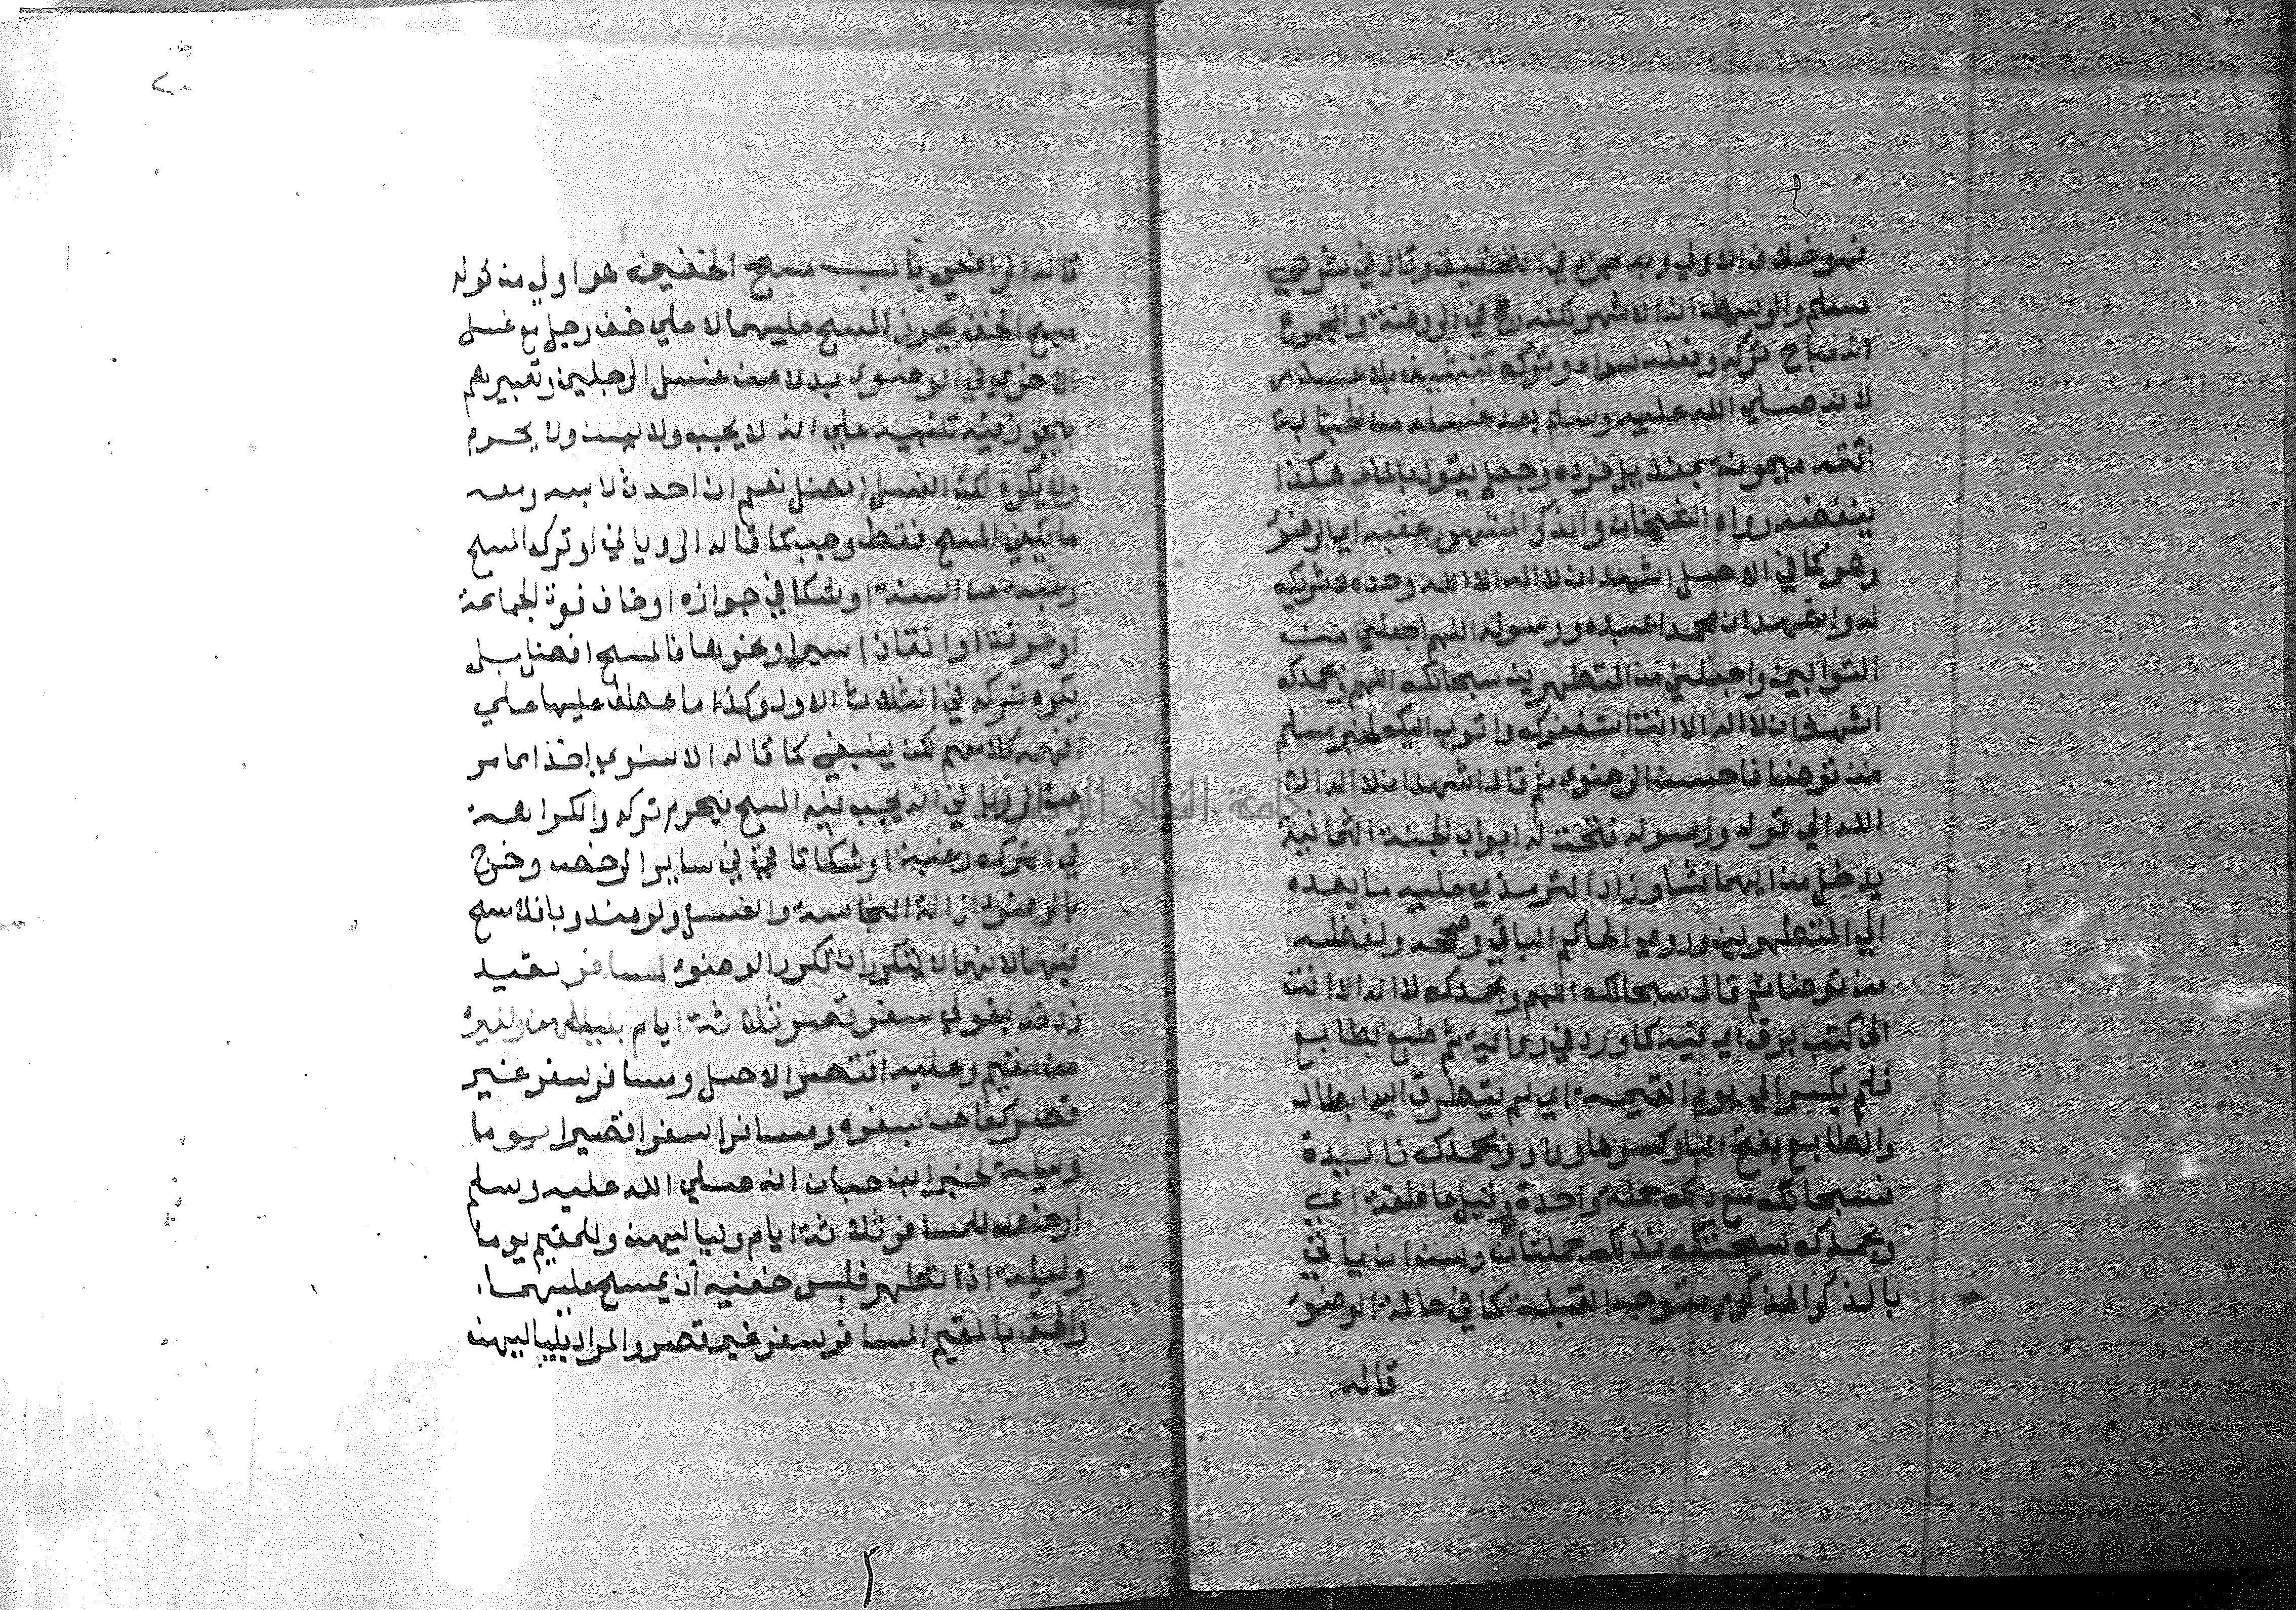 فهو خلاف الاولي وبه جزم في التحقيق وقال في شرحي
مسلم والوسيط انه الاشهر لكنه رجح في الروضة والمجموع
انه مباح تركه وفعله سواء وترك تنشيف بلا عذر
لانه صلي الله عليه وسلم بعد غسله من الجنابة
اتته ميمونة بمنديل فرده وجعل يقول بالماء هكذا
ينفضه رواه الشيخان والذكر المشهور عقبه اي الوضوء
وهو كما في الاصل اشهد ان لا اله الا الله وحده لا شريك
له واشهد ان محمدا عبده ورسوله اللهم اجعلني من
التوابين واجعلني من المتطهرين سبحانك اللهم وبحمدك
اشهد ان لا اله الا انت استغفرك واتوب اليك لخبر مسلم
من توضا فاحسن الوضوء ثم قال اشهد ان لا اله الا
الله الي قوله ورسوله فتحت له ابواب الجنة الثمانية
يدخل من ايهما شا وزاد الترمذي عليه ما بعده
الي المتطهرين وروي الحاكم الباقي وصححه ولفظه
من توضا ثم قال سبحانك اللهم وبحمدك لا اله الا انت
الخ كتب برق اي فيه كما ورد في رواية ثم طبع بطابع
فلم يكسر الي يوم القيمة اي لم يتطرق اليه ابطال
والطابع بفتح البا وكسرها وواو وبحمدك زايدة
فسبحانك مع ذلك جملة واحدة وقيل عاطفة اي
وبحمدك سبحتك فذلك جملتان وسن ان ياتي
بالذكر المذكور متوجه القبلة كما في حالة الوضوء
قاله
قاله الرافعي باب مسح الخفين هو اولي من قوله
مسح الخف يجوز المسح عليهما لا علي خف رجل مع غسل
الاخري في الوضوء بدلا عن غسل الرجلين وتعبيرهم
بيجوز فيه تنبيه علي انه لا يجب ولا يسن ولا يحرم
ولا يكره لكن الغسل افضل نعم ان احدث لابسه ومعه
ما يكفي المسح فقط وجب كما قاله الروياني او ترك المسح
رغبة عن السنة او شكا في جوازه او خاف فوت الجماعة
او عرفة او انقاذ اسير او نحوها فالمسح افضل بل
يكره تركه في الثلاث الاول وكذا ما عطف عليها علي
افهمه كلامهم لكن ينبغي كما قاله الاسنوي اخذا مما مر
عن الروياني انه يجب فيه المسح فيحرم تركه والكراهة
في الترك رغبة او شكا تاتي في ساير الرخص وخرج
بالوضوء ازالة النجاسة والغسل ولو مندوبا فلا مسح
فيهما لانهما لا يتكرران تكرر الوضوء لمسافر بقيد
زدته بقولي سفر قصر ثلاثة ايام بلياليهن ولغيره
من مقيم وعليه اقتصر الاصل ومسافر سفر غير
قصر كعاص بسفره ومسافر سفرا قصيرا يوما
وليلة لخبر ابن حبان انه صلي الله عليه وسلم
ارخص للمسافر ثلاثة ايام ولياليهن وللمقيم يوما
وليلة اذا تطهر فلبس خفيه ان يمسح عليهما
والحق بالمقيم المسافر سفر غير قصر والمراد بلياليهن
جامعة النجاح الوطنية